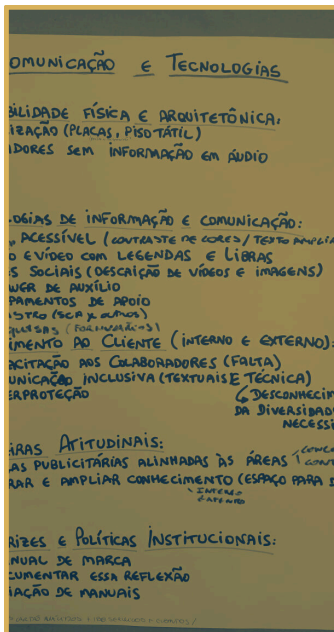 OMUNICAÇÃO E TECNOLOGIAS
BILIDADE FÍSICA E ARQUITETÔNICA:
IZAÇÃO (PLACAS, PISO TÁTIL)
DORES SEM INFORMAÇÃO EM ÁUDIO
LOGIAS DE INFORMAÇÃO E COMUNICAÇÃO:
ACESSÍVEL (CONTRASTE DE CORES / TEXTO AMPLIA
O E VÍDEO COM LEGENDAS E LIBRAS
S SOCIAIS (DESCRIÇÃO DE VÍDEOS E IMAGENS)
WER DE AUXÍLIO
PAMENTOS DE APOIO
ASTRO (SCA
QUISAS (FORMULÁRIOS)
IMENTO AO CLIENTE (INTERNO E EXTERNO):
ACITAÇÃO AOS COLABORADORES (FALTA)
UNICAÇÃO INCLUSIVA (TEXTUAIS E TÉCNICA)
ERPROTEÇÃO
DESCONHECIM
DA DIVERSIDAD
NECESSI
IRAS ATITUDINAIS:
AS PUBLICITÁRIAS ALINHADAS ÀS ÁREAS
RAR E AMPLIAR CONHECIMENTO (ESPAÇO PARA
INTERNO
EXTERNO
RIZES E POLÍTICAS INSTITUCIONAIS:
NUAL DE MARCA
CUMENTAR ESSA REFLEXÃO
IAÇÃO DE MANUAIS